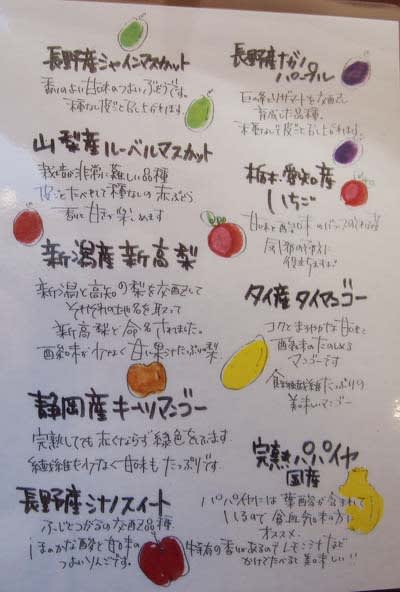 長野産シャインマスカット
香りのよい甘味のつよいぶどうです。
種なし皮ごとお召し上がれます
山梨産ルーベルマスカット
栽培が非常に難しい品種
皮ごとたべれて種なしの赤ぶどう
香りと甘さが楽しめます
新潟産 新高梨
新潟と高知の梨を交配して
それぞれの地名を取って
新高梨と命名されました。
酸味が少なく甘い果汁たっぷりの梨
静岡産キーツマンゴー
完熟しても赤くならず緑色をしています
繊維も少なく甘味もたっぷりです。
長野産シナノスイート
ふじとつがるの交配品種
ほのかな酸と甘味の
つよいりんごです。
長野産ナガノ
パープル
巨峰とリザマートを交配して
育成した品種。
種なしで皮ごと召し上がれます。
栃木・愛知産
いちご
甘味と酸味の
タイ産タイマンゴー
コクとまろやかな甘味と
酸味のたのしめる
マンゴーです
食物繊維たっぷりの
美味しいマンゴー
完熟パパイヤ
国産
パパイヤには葉酸が含まれて
いるので貧血気味の方に
オススメ、
特有の香りがあるのでレモン汁など
かけてたべると美味しい!!